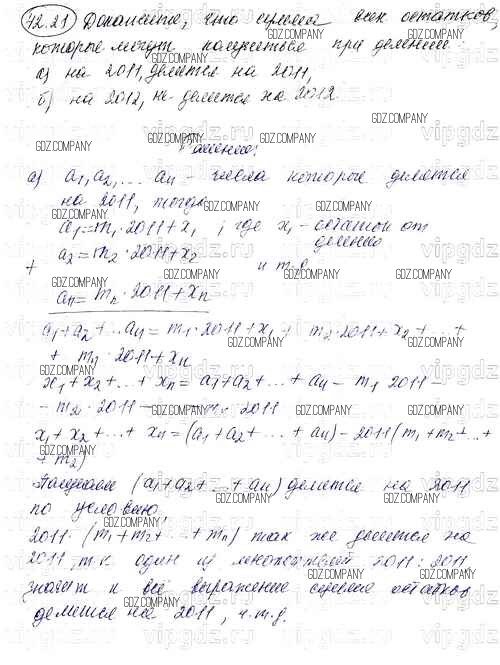 72.21 Докажите, что сумма всех остатков,
которые могут получиться при делении:
а) на 2011, делится на 2011,
б) на 2012, не делится на 2012.
Решение:
а) a₁, a₂, ... aп – числа которые делятся
на 2011, тогда
a₁=m₁·2011+x₁ ; где x₁ – остаток от
деления
a₂=m₂·2011+x₂
и т.д.
+
aп= mп·2011+xп
a₁+a₂+...aп = m₁·2011+x₁+ m₂·2011+x₂+...+
+ mп·2011+xп
x₁+x₂+...+xп= a₁+a₂+...+aп – m₁ 2011 –
– m₂·2011 – 2011
x₁+x₂+...+xп=(a₁+a₂+...+aп)–2011(m₁+m₂+..+
+m₂)
(a₁+a₂+...+aп) делится на 2011
по условию,
2011·(m₁+m₂+...+mп) так же делится на
2011, т.к один из множителей 2011⋮2011,
значит и всё выражение сумма остатков
делится на 2011, ч.т.д.